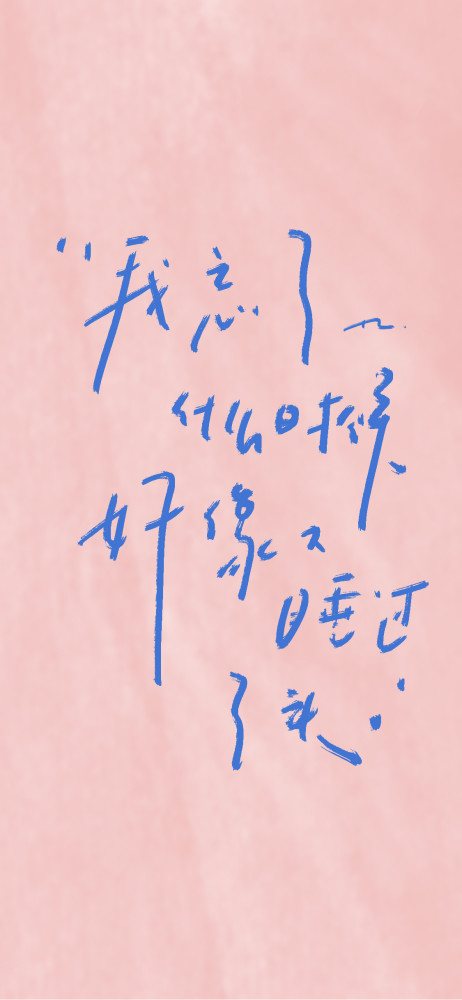 “我忘了~
什么时候
好像又
睡过
了头”